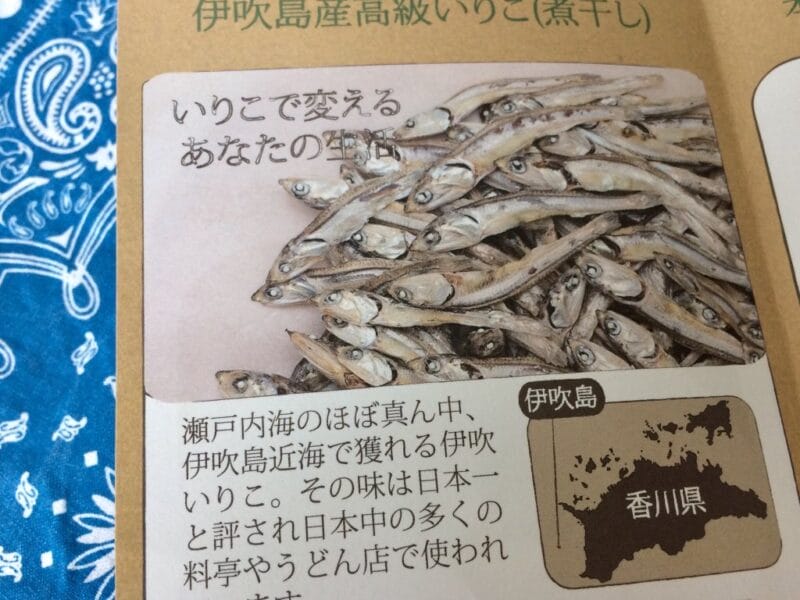 伊吹島産高級いりこ(煮干し)
いりこで変える
あなたの生活
瀬戸内海のほぼ真ん中、
伊吹島近海で獲れる伊吹
いりこ。その味は日本一
と評され日本中の多くの
料亭やうどん店で使われ
伊吹島
香川県